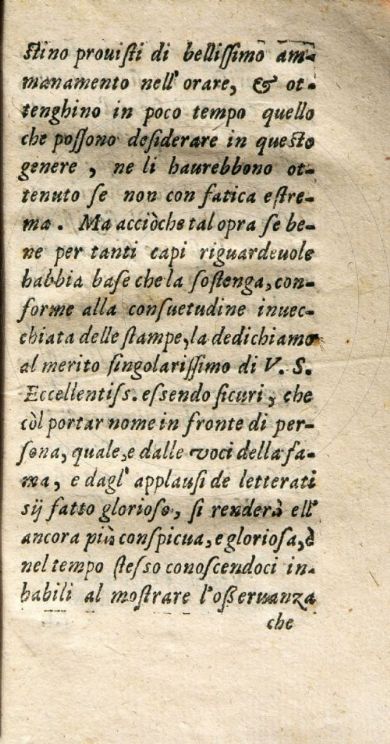 ſtino prouiſti di belliſſimo am-
manamento nell' orare, & ot-
tenghino in poco tempo quello
che poſſono deſiderare in queſto
genere, ne li haurebbono ot-
tenuto ſe non con fatica eſtre-
ma. Ma acciòche tal opra ſe be-
ne per tanti capi riguardeuole
habbia baſe che la ſoſtenga, con-
forme alla conſuetudine inuec-
chiata delle ſtampe, la dedichiamo
al merito ſingolariſſimo di V. S.
Eccellentiſs. eſsendo ſicuri, che
còl portar nome in fronte di per-
ſona, quale, e dalle voci della fa-
ma, e dagl' applauſi de letterati
sij fatto glorioſo, ſi renderà ell'
ancora più conſpicua, e glorioſa, è
nel tempo ſteſso conoſcendoci in-
habili al moſtrare l'oßeruanza
che